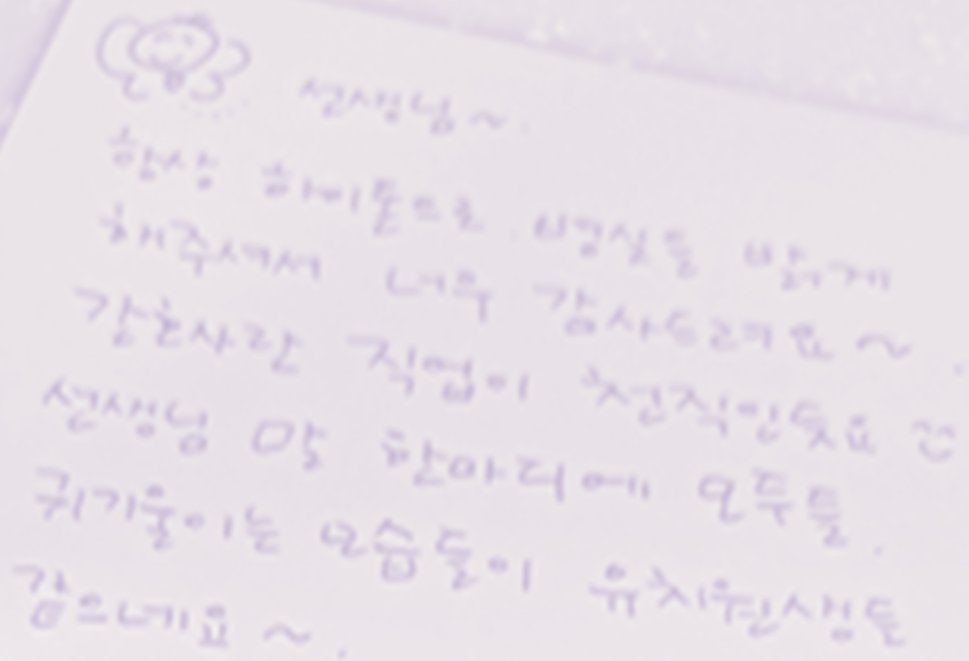 선생님~.
항상 하이톤으로 병실을 밝게
해주셔서 너무 감사드려요~.
간호사란 직업이 천직인듯요
선생님 말 한마디에 모두들.
귀기울이는 모습들이 유치원생들
같으네요~.